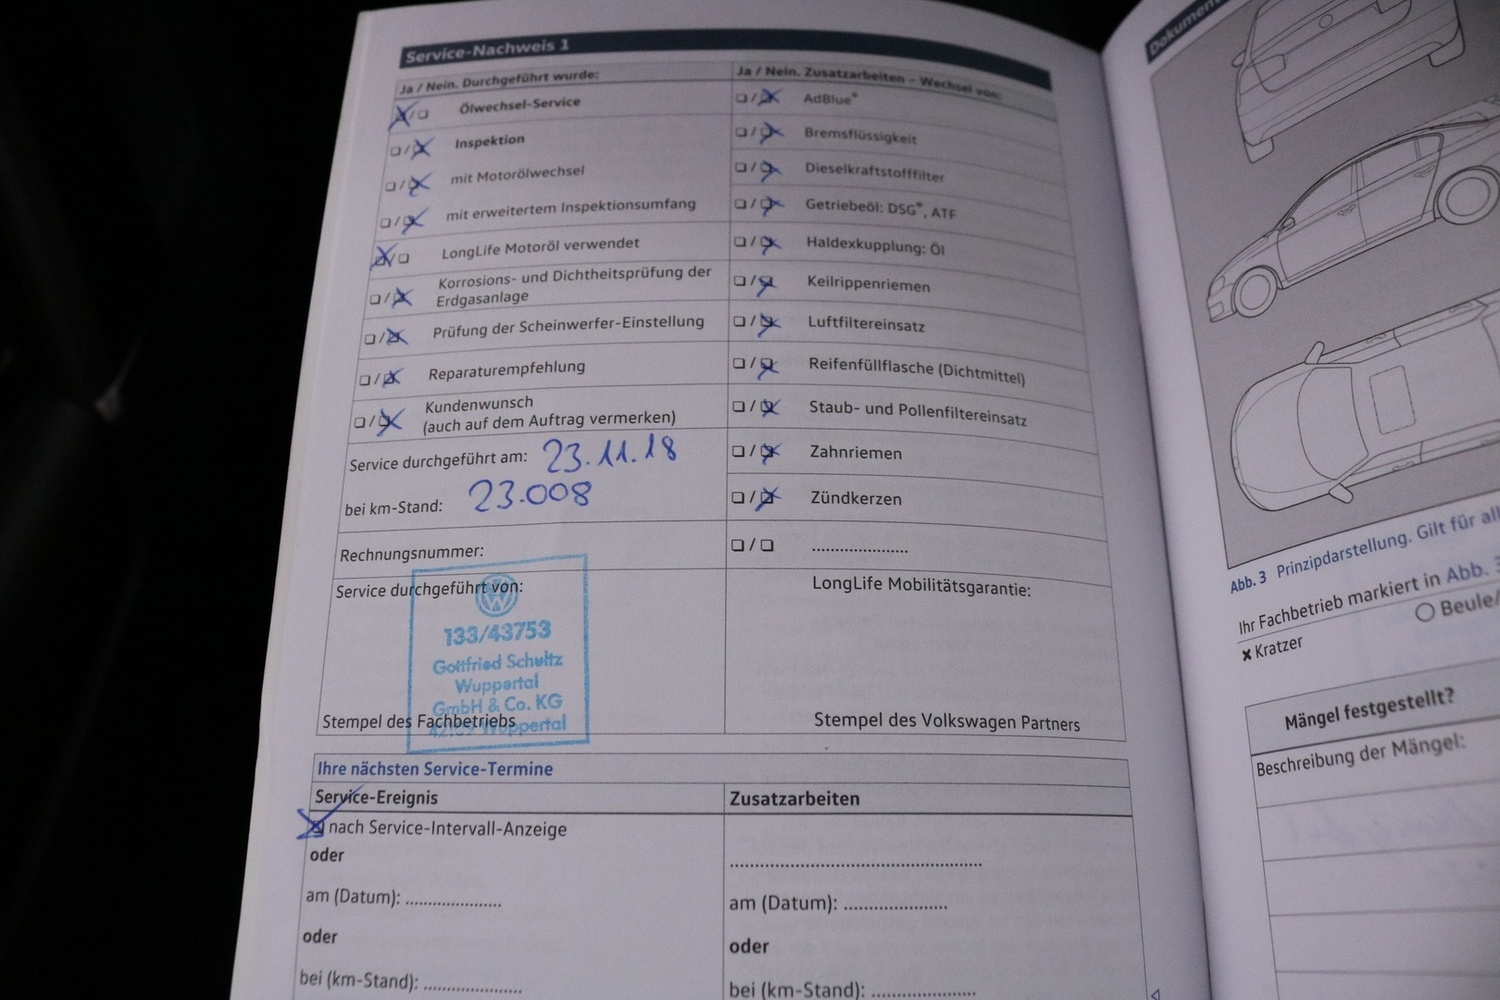 Service-Nachweis 1
Ja / Nein. Durchgeführt wurde:
Ölwechsel-Service
Inspektion
mit Motorölwechsel
mit erweitertem Inspektionsumfang
LongLife Motoröl verwendet
Korrosions- und Dichtheitsprüfung der
Erdgasanlage
Prüfung der Scheinwerfer-Einstellung
Reparaturempfehlung
Kundenwunsch
(auch auf dem Auftrag vermerken)
Service durchgeführt am: 23.11.18
bei km-Stand: 23.008
Rechnungsnummer:
Service durchgeführt von:
133/43753
Gottfried Schultz
Wuppertal
GmbH & Co. KG
Wuppertal
Stempel des Fachbetriebs
Ja / Nein. Zusatzarbeiten – Wechsel von:
AdBlue®
Bremsflüssigkeit
Dieselkraftstofffilter
Getriebeöl: DSG®, ATF
Haldexkupplung: Öl
Keilrippenriemen
Luftfiltereinsatz
Reifenfüllflasche (Dichtmittel)
Staub- und Pollenfiltereinsatz
Zahnriemen
Zündkerzen
/ ....................
LongLife Mobilitätsgarantie:
Stempel des Volkswagen Partners
Ihre nächsten Service-Termine
Service-Ereignis
nach Service-Intervall-Anzeige
oder
am (Datum): ....................
oder
bei (km-Stand): ....................
Zusatzarbeiten
....................................................
am (Datum): ....................
oder
bei (km-Stand): ....................
Abb. 3 Prinzipdarstellung. Gilt für
Ihr Fachbetrieb markiert in Abb.
Beule/
✖ Kratzer
Mängel festgestellt?
Beschreibung der Mängel: